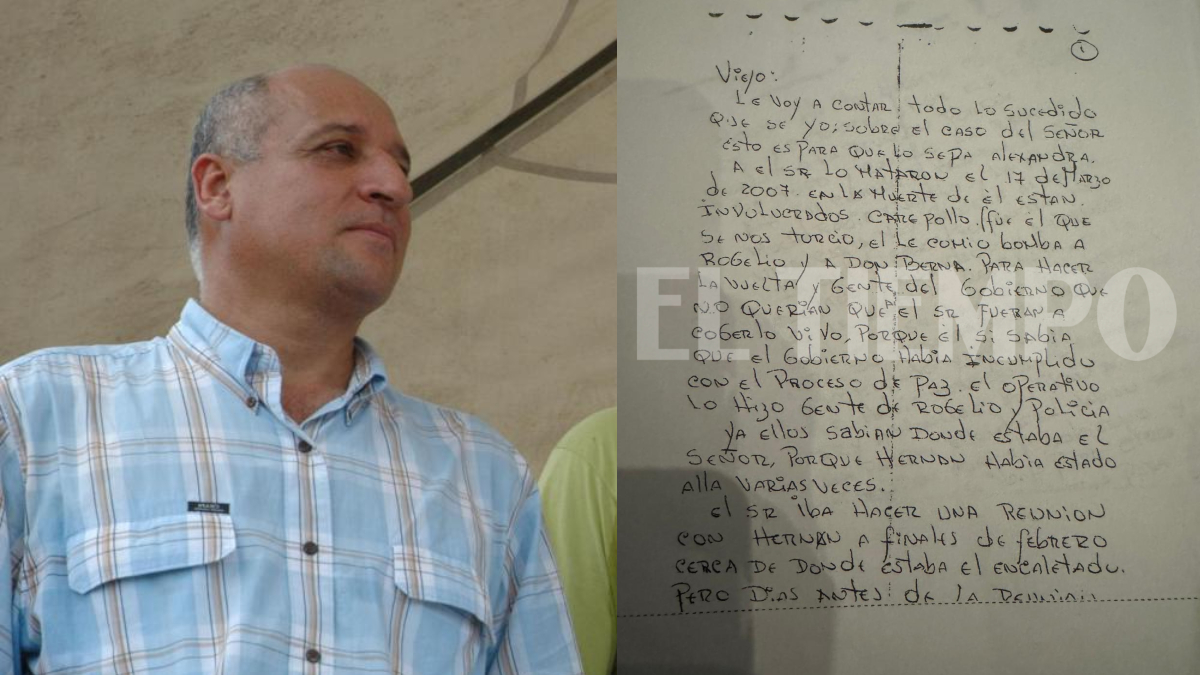 1
Viejo:
Le voy a contar todo lo sucedido
que se yo; sobre el caso del señor
esto es para que lo sepa Alexandra.
A el sr lo mataron el 17 de Marzo
de 2007. en la muerte de èl estan
involucrados. Carepollo. (fue el que
se nos torcio, el le comio bomba a
Rogelio y a Don Berna. Para hacer
la vuelta y gente del gobierno que
no querian que el sr fueran a
cogerlo vivo porque èl si sabia
que el gobierno habia incumplido
con el proceso de paz. el operativo
lo hizo gente de Rogelio y policia
ya ellos sabian donde estaba el
señor, porque Hernan habia estado
alla varias veces.
el sr iba hacer una reunion
con Hernan a finales de febrero
cerca de donde estaba el encaletado.
pero dias antes de la reunion
EL TIEMPO